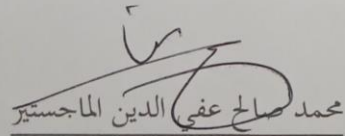 محمد صالح عفي الدين الماجستير